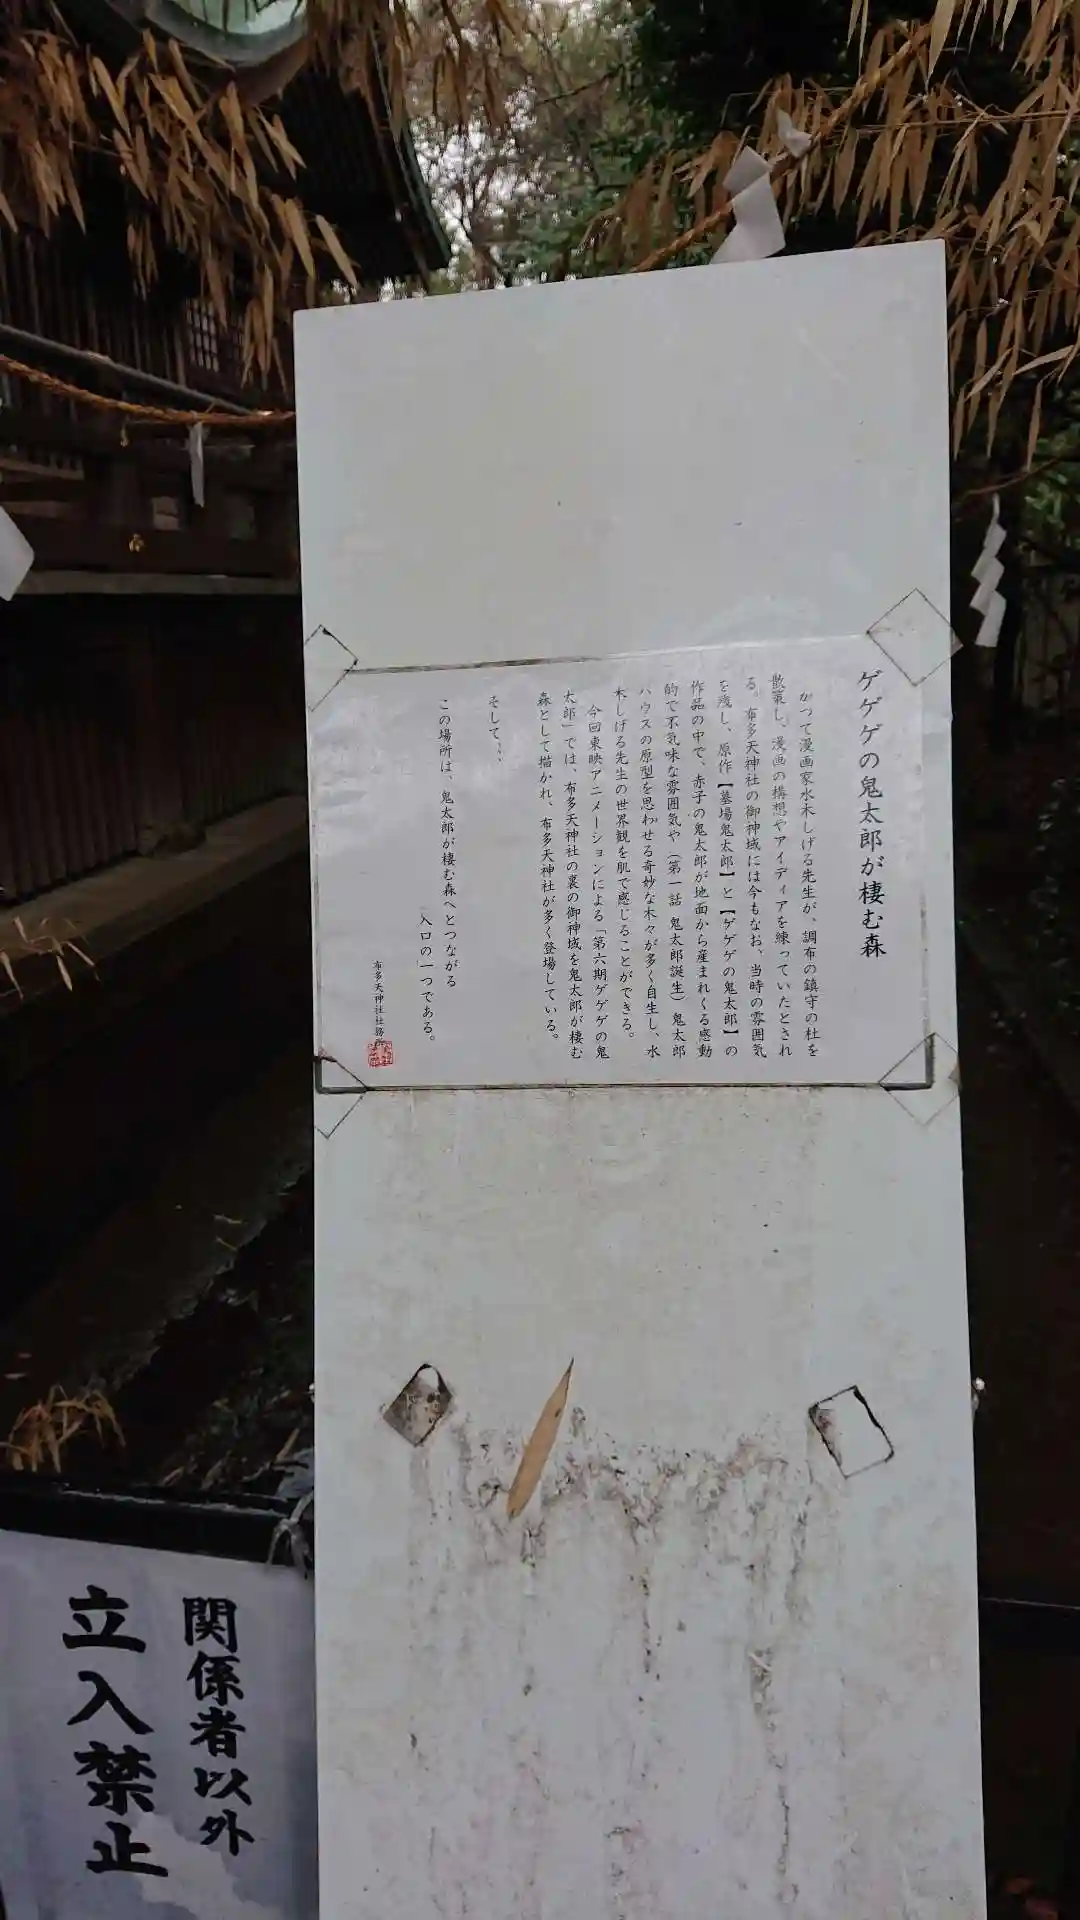 ゲゲゲの鬼太郎が棲む森
かつて漫画家水木しげる先生が、調布の鎮守の杜を
散策し、漫画の構想やアイディアを練っていたとされ
る。布多天神社の御神域には今もなお、当時の雰囲気
を残し、原作【墓場鬼太郎】と【ゲゲゲの鬼太郎】の
作品の中で、赤子の鬼太郎が地面から産まれくる感動
的で不気味な雰囲気や(第一話 鬼太郎誕生)鬼太郎
ハウスの原型を思わせる奇妙な木々が多く自生し、水
木しげる先生の世界観を肌で感じることができる。
今回東映アニメーションによる「第六期ゲゲゲの鬼
太郎」では、布多天神社の裏の御神域を鬼太郎が棲む
森として描かれ、布多天神社が多く登場している。
そして、、
この場所は、鬼太郎が棲む森へとつながる
入口の一つである。
布多天神社社務所
関係者以外
立入禁止